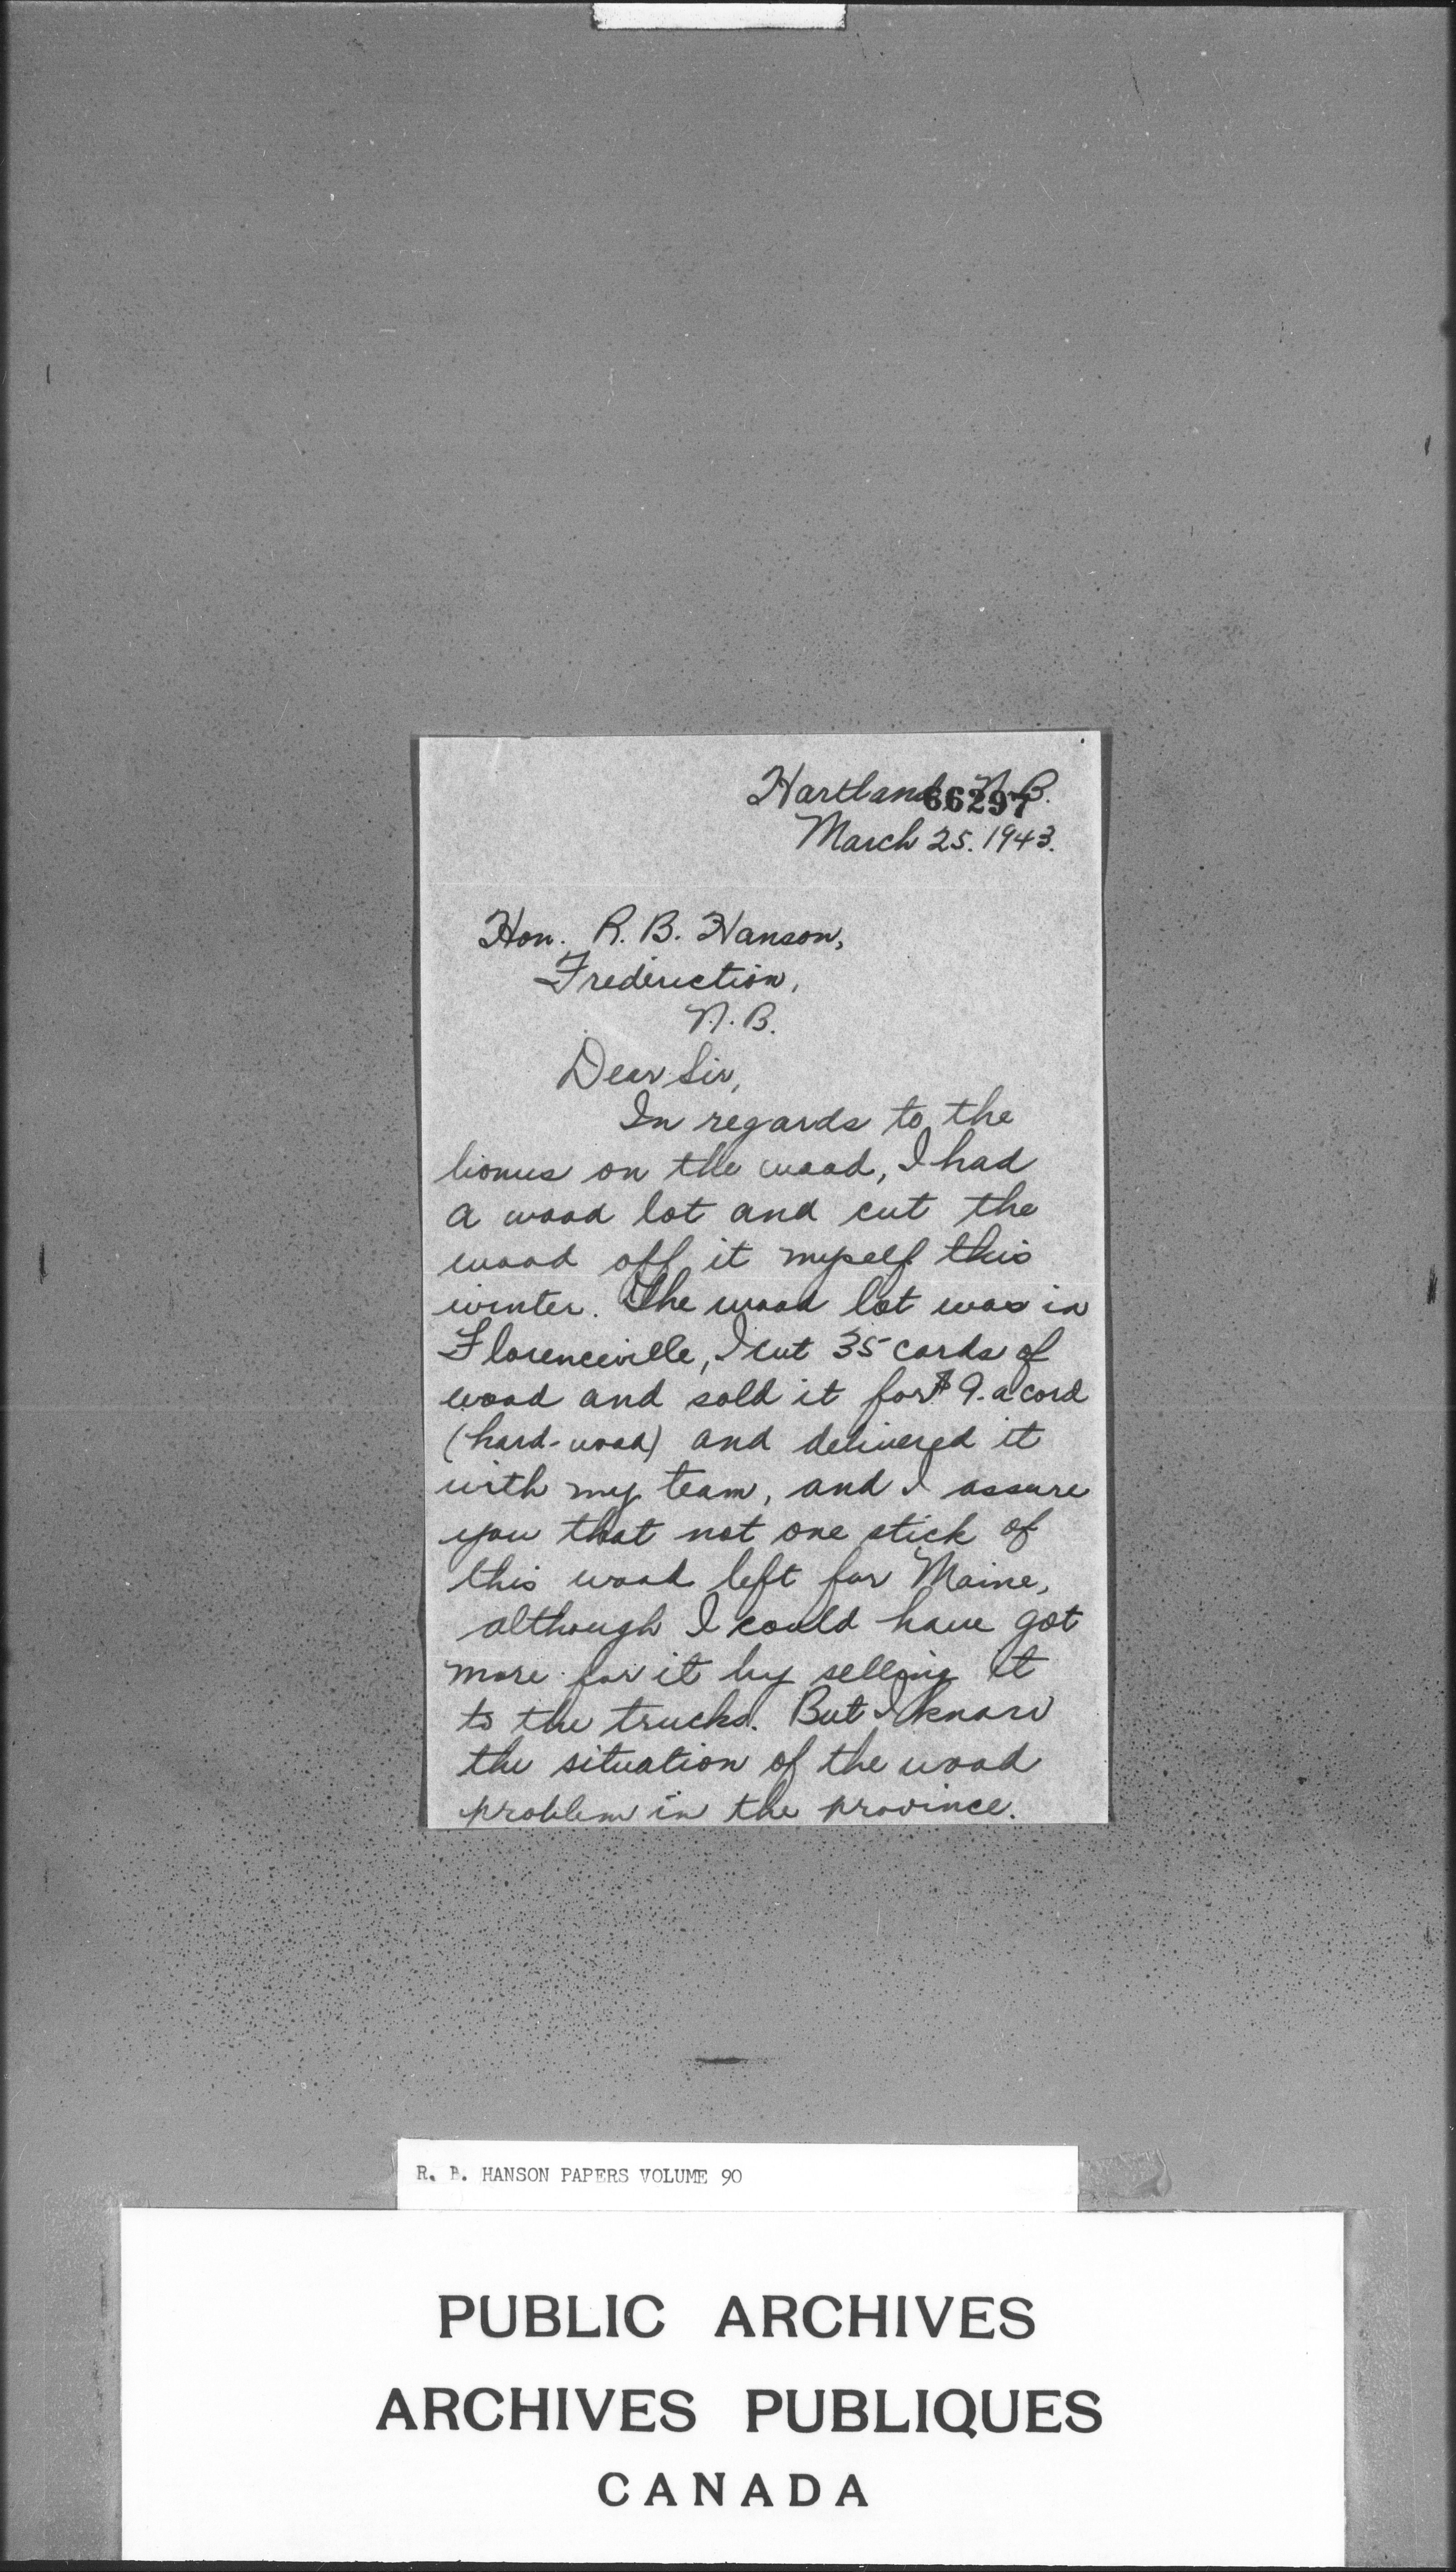 Hartland N.B.
66297
March 25. 1943.
Hon. R. B. Hanson,
Frederiction,
N. B.
Dear Sir,
In regards to the
bonus on the wood, I had
a wood lot and cut the
wood off it myself this
winter. The wood lot was in
Florenceville, I cut 35 cords of
wood and sold it for $9. a cord
(hard-wood) and delivered it
with my team, and I assure
you that not one stick of
this wood left for Maine,
although I could have got
more for it by selling it
to the trucks. But I know
the situation of the wood
problem in the province.
R. B. HANSON PAPERS VOLUME 90
PUBLIC ARCHIVES
ARCHIVES PUBLIQUES
CANADA